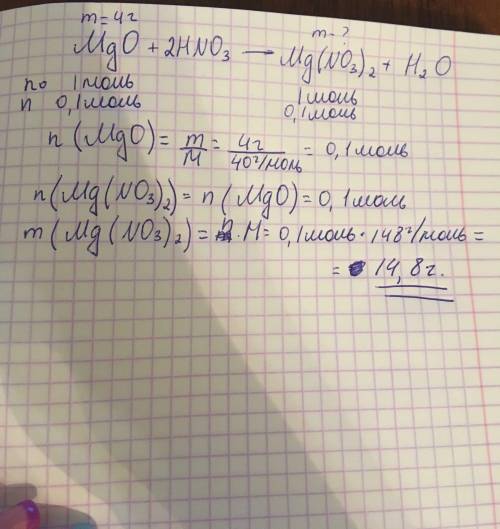 m=4г m-?
MgO + 2HNO₃ — Mg(NO₃)₂ + H₂O
по 1моль 1моль
n 0,1моль 0,1моль
n(MgO) = m/M = 4г/40г/моль = 0,1моль
n(Mg(NO₃)₂) = n(MgO) = 0,1моль
m(Mg(NO₃)₂) = n·M = 0,1моль · 148г/моль =
= 14,8г.